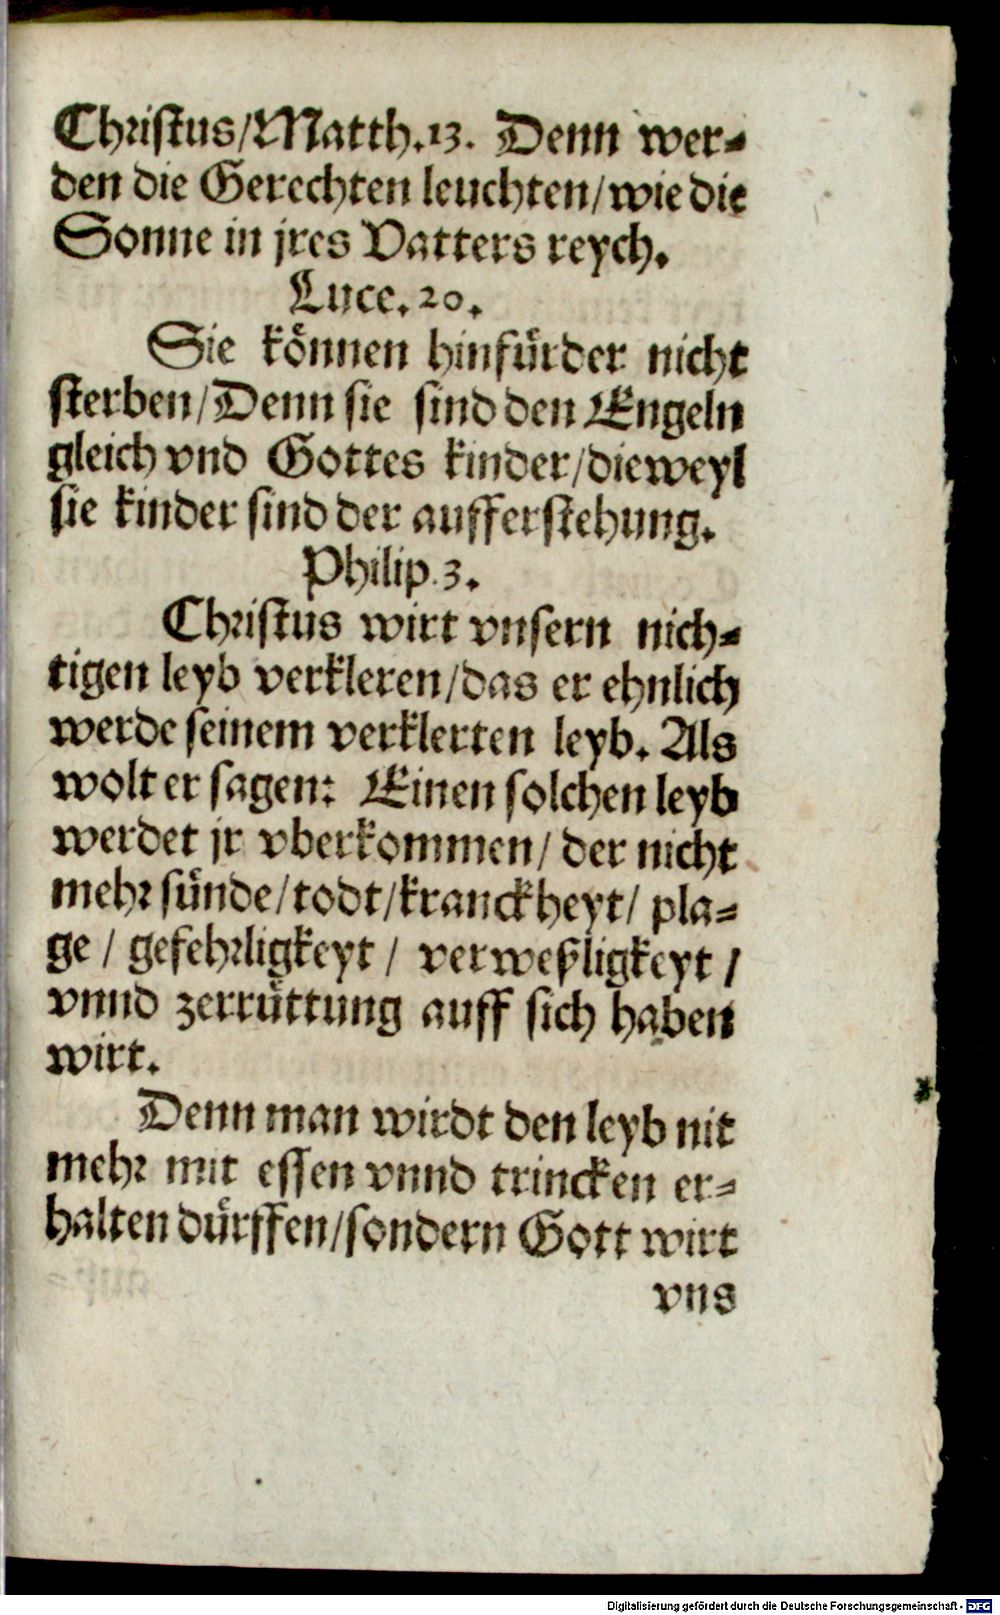 Christus/Matth.13. Denn wer⸗
den die Gerechten leuchten/wie die
Sonne in jres Vatters reych.
Luce.20.
Sie können hinfürder nicht
sterben/Denn sie sind den Engeln
gleich vnd Gottes kinder/dieweyl
sie kinder sind der aufferstehung.
Philip.3.
Christus wirt vnsern nich⸗
tigen leyb verkleren/das er ehnlich
werde seinem verklerten leyb. Als
wolt er sagen: Einen solchen leyb
werdet jr vberkommen/ der nicht
mehr sünde/todt/kranckheyt/ pla⸗
ge / gefehrligkeyt / verweßligkeyt /
vnnd zerrüttung auff sich haben
wirt.
Denn man wirdt den leyb nit
mehr mit essen vnnd trincken er⸗
halten dürffen/sondern Gott wirt
vns
Digitalisierung gefördert durch die Deutsche Forschungsgemeinschaft - DFG